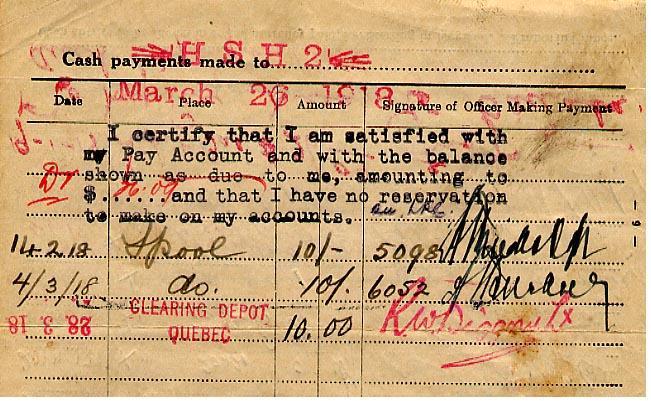 Cash payments made to H S H 2
March 26 1918
Date Place Amount Signature of Officer Making Payment
I certify that I am satisfied with
my Pay Account and with the balance
Dr shown as due to me, amounting to
$......and that I have no reservation
to make on my accounts.
14 2 18 Spool 10/- 5098
4/3/18 do. 10/. 6052
28. 3. 18 CLEARING DEPOT 10.00
QUEBEC
- 9 -